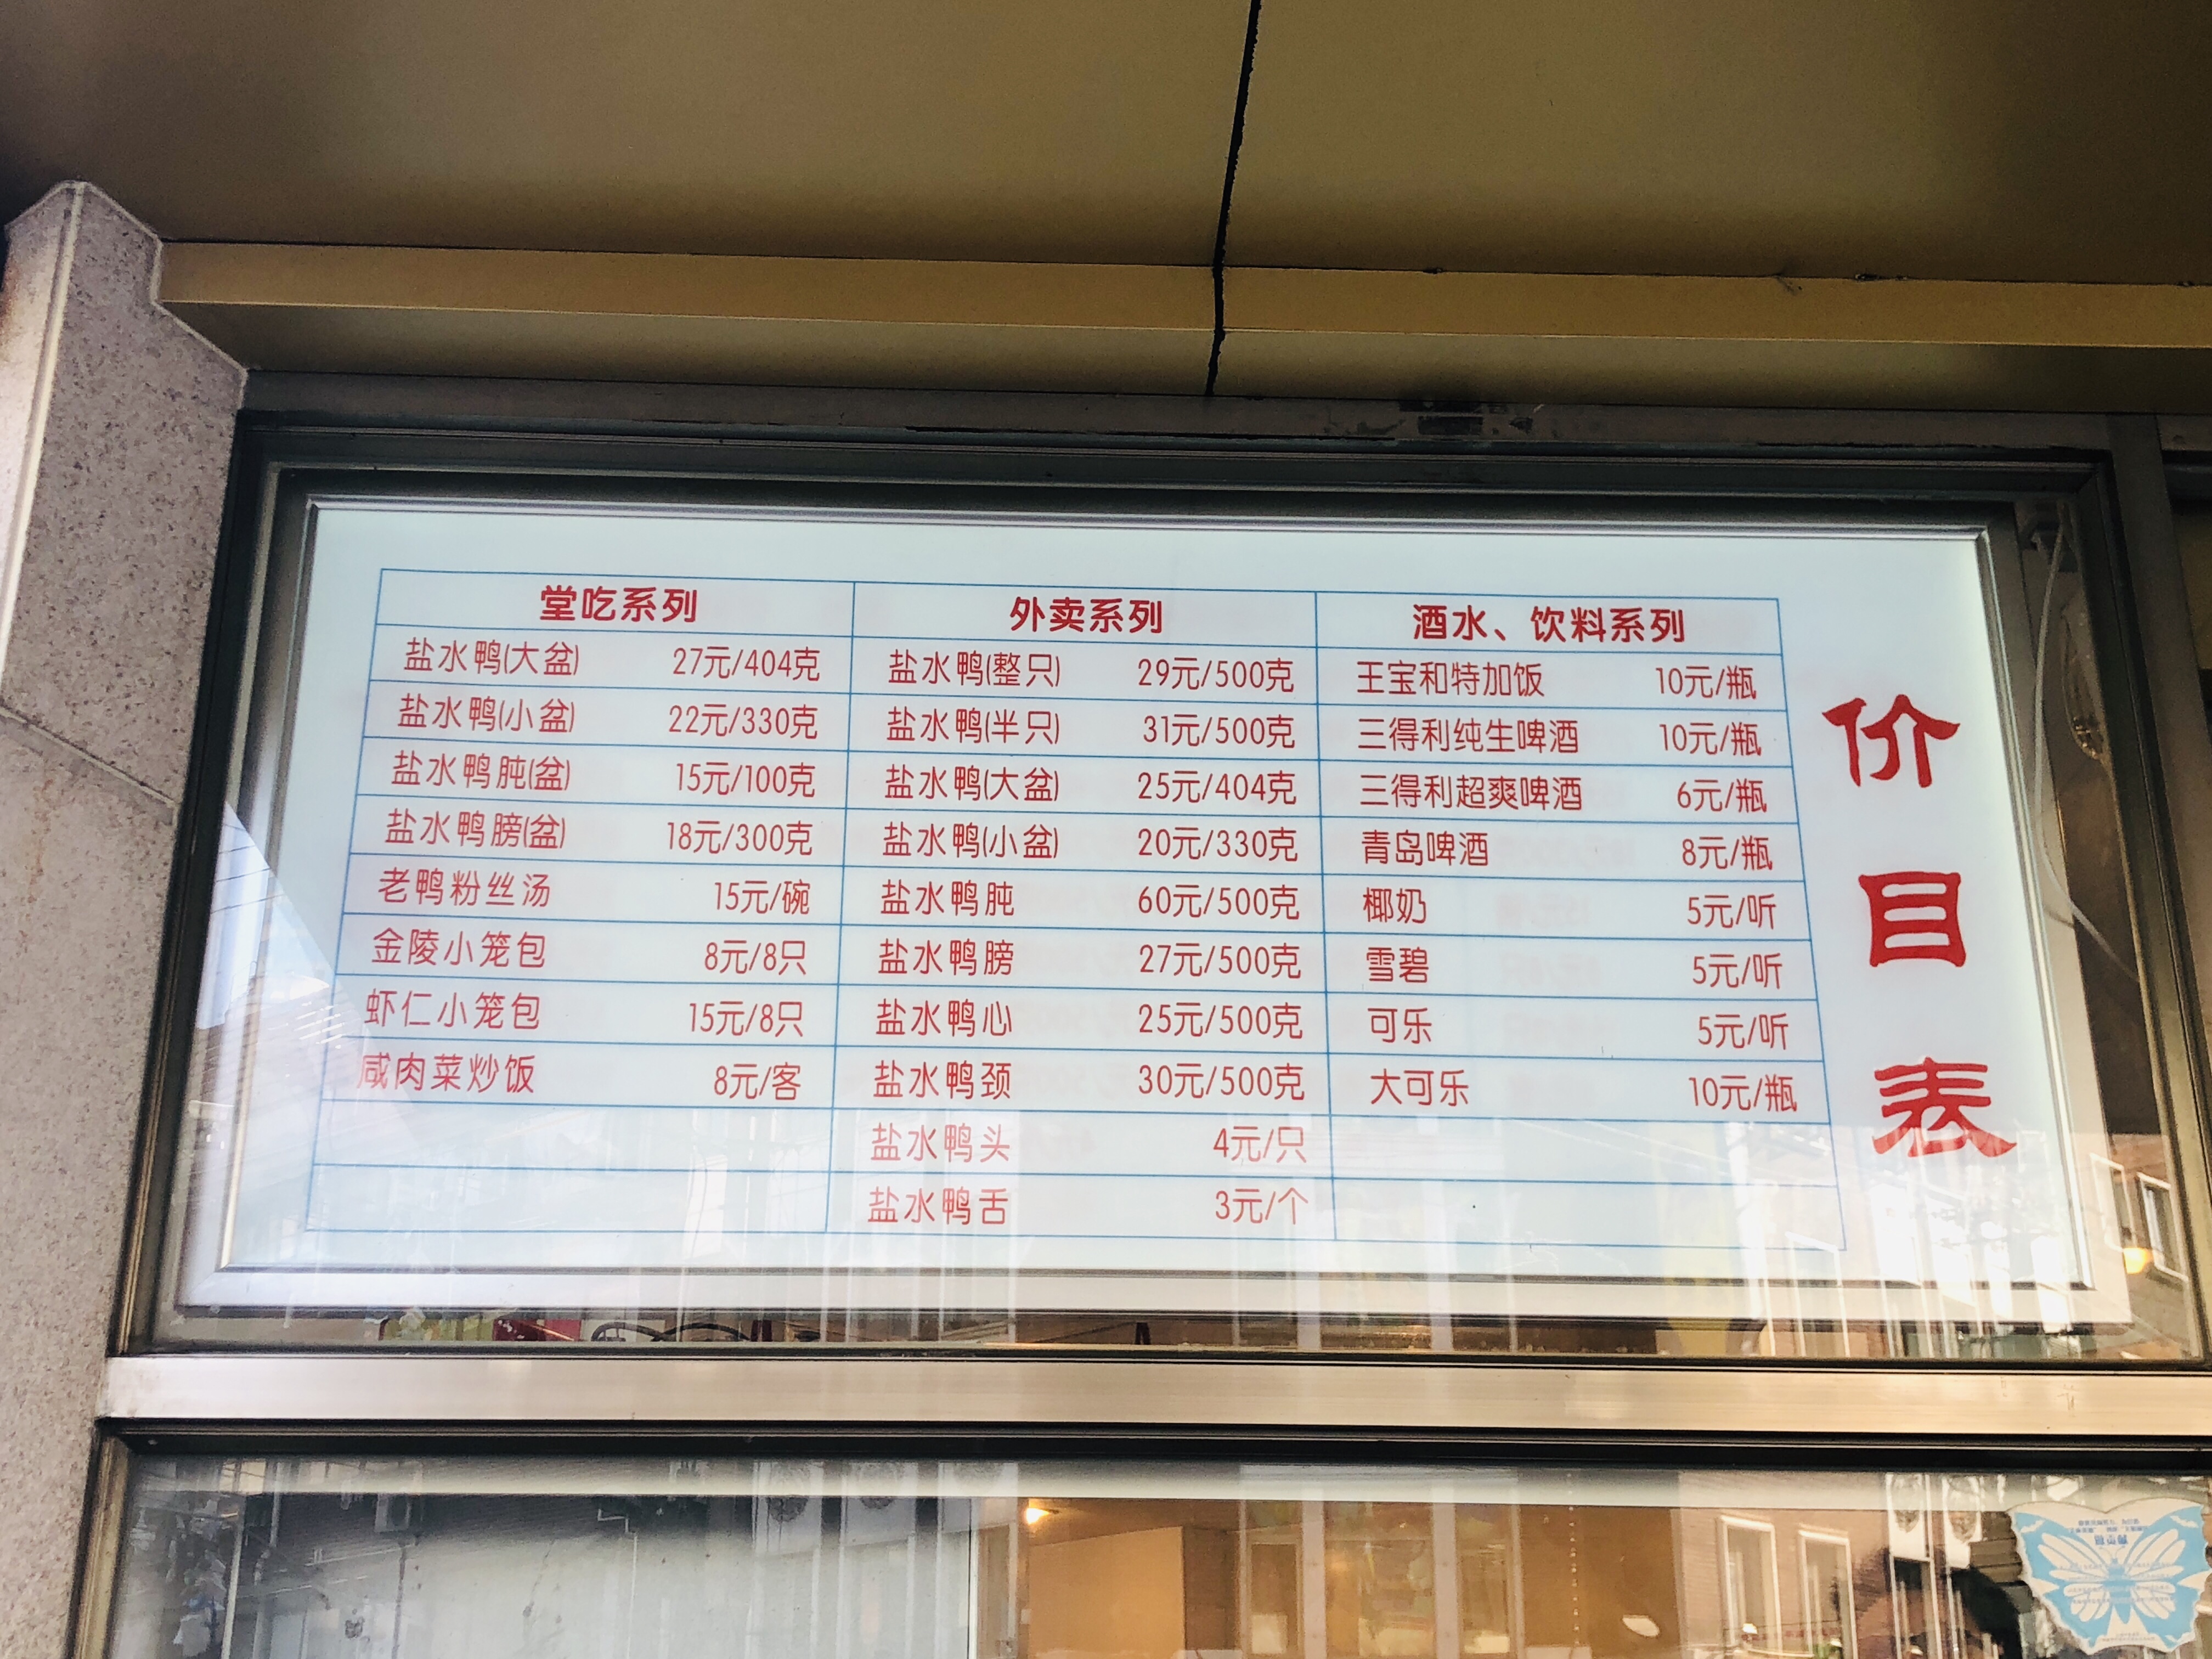 价目表
堂吃系列
盐水鸭(大盆) 27元/404克
盐水鸭(小盆) 22元/330克
盐水鸭肫(盆) 15元/100克
盐水鸭膀(盆) 18元/300克
老鸭粉丝汤 15元/碗
金陵小笼包 8元/8只
虾仁小笼包 15元/8只
咸肉菜炒饭 8元/客
外卖系列
盐水鸭(整只) 29元/500克
盐水鸭(半只) 31元/500克
盐水鸭(大盆) 25元/404克
盐水鸭(小盆) 20元/330克
盐水鸭肫 60元/500克
盐水鸭膀 27元/500克
盐水鸭心 25元/500克
盐水鸭颈 30元/500克
盐水鸭头 4元/只
盐水鸭舌 3元/个
酒水、饮料系列
王宝和特加饭 10元/瓶
三得利纯生啤酒 10元/瓶
三得利超爽啤酒 6元/瓶
青岛啤酒 8元/瓶
椰奶 5元/听
雪碧 5元/听
可乐 5元/听
大可乐 10元/瓶